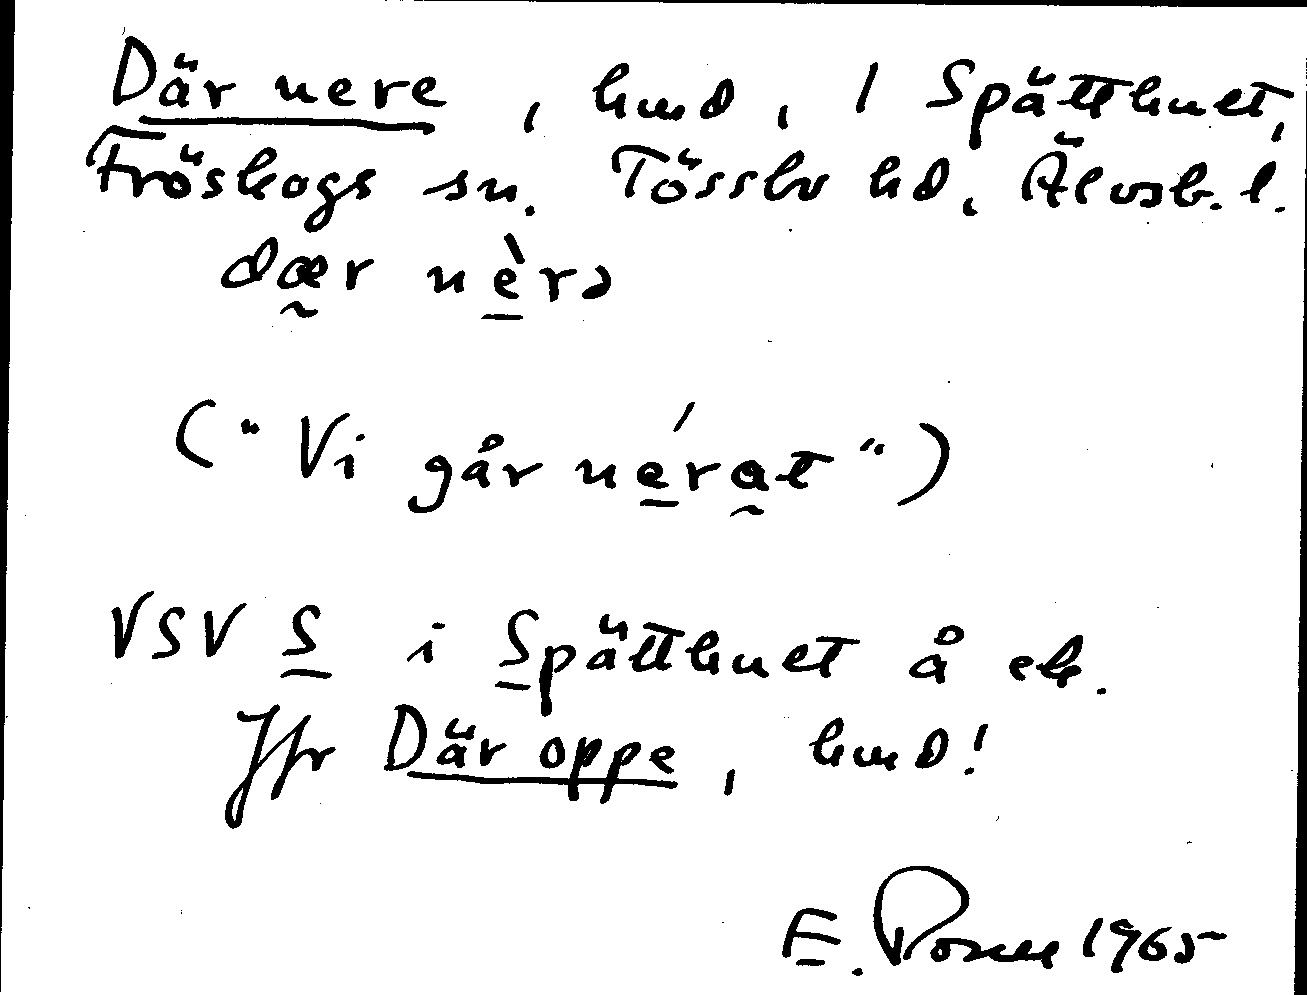 Där nere, hmd, i Spättknet,
Fröskogs sn. Tössbo hd, Älvsb. l.
dær nèrə
("Vi går nérat")
VSV S i Spättknet å ek.
Jfr Där oppe, hmd!
E. 1965